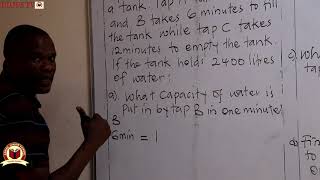 a tank. Tap A
and B takes 6 minutes to fill
the tank while tap C takes
12 minutes to empty the tank.
If the tank holds 2400 litres
of water;
a). What capacity of water is
put in by tap B in one minute
B
6min = 1
c).
Wha
b) Fin
to